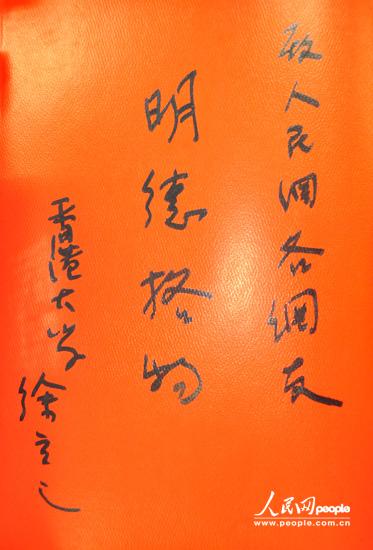 致人民网各网友
明德格物
香港大学
徐立之
人民网 people
www.people.com.cn